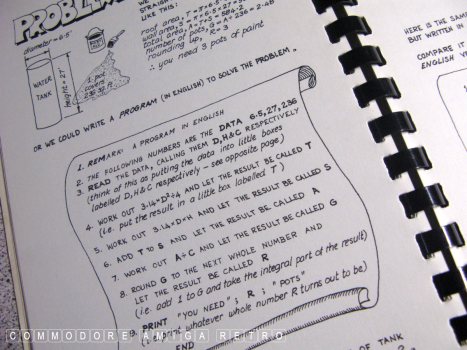 PROBLEM
STRAIGH
LIKE THIS:
roof area, T =
wall area, S =
total area, A = T+S = 584.2
number of pots, G = A÷236 = 2.48
rounding up, R = 3
∴ you need 3 pots of paint
diameter = 6.5'
WATER
TANK
height = 27'
PAINT
1 pot
covers
236 sq. ft.
OR WE COULD WRITE A PROGRAM (IN ENGLISH) TO SOLVE THE PROBLEM.
1. REMARK: A PROGRAM IN ENGLISH
2. THE FOLLOWING NUMBERS ARE THE DATA 6.5, 27, 236
3. READ THE DATA, CALLING THEM D, H & C RESPECTIVELY
(think of this as putting the data into little boxes
labelled D, H & C respectively – see opposite page)
4. WORK OUT 3.14×D²÷4 AND LET THE RESULT BE CALLED T
(i.e. put the result in a little box labelled T)
5. WORK OUT 3.14×D×H AND LET THE RESULT BE CALLED S
6. ADD T TO S AND LET THE RESULT BE CALLED A
7. WORK OUT A÷C AND LET THE RESULT BE CALLED G
8. ROUND G TO THE NEXT WHOLE NUMBER AND
LET THE RESULT BE CALLED R
(i.e. add 1 to G and take the integral part of the result)
9. PRINT "YOU NEED"; R; "POTS"
(i.e. print whatever whole number R turns out to be)
END
HERE IS THE SAME
BUT WRITTEN IN
COMPARE IT
ENGLISH VE
OF TANK
COMMODORE AMIGA RETRO